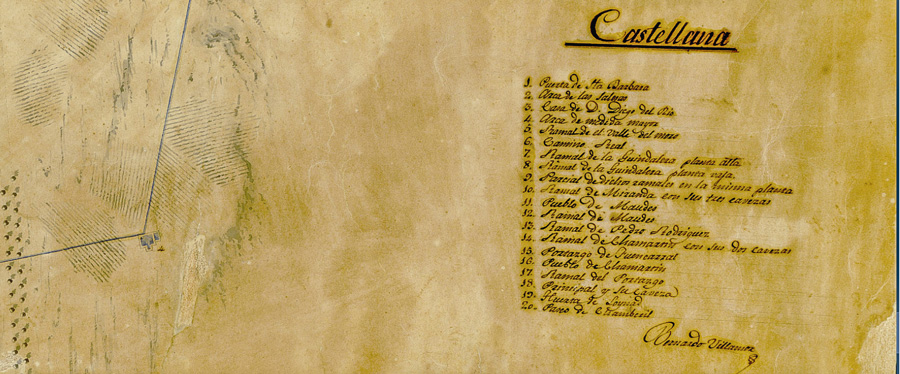 Castellana
1. Puerta de Sta Barbara
2. Arca de las Salesas
3. Casa de D. Diego del Rio
4. Arca de medida mayor
5. Ramal de el Valle del moro
6. Camino Real
7. Ramal de la Guindalera planta alta
8. Ramal de la Guindalera planta vaja.
9. Parcial de dichos ramales en la misma planta
10. Ramal de Miranda con sus tres cavezas
11. Pueblo de Maudes
12. Ramal de Maudes
13. Ramal de Pedro Rodriguez
14. Ramal de Chamartin con sus dos cavezas
15. Portazgo de Fuencarral
16. Pueblo de Chamartin
17. Ramal del Portazgo
18. Principal y su Caveza
19. Huerta de
20. Paseo de Chamberil
Bernardo Villamor